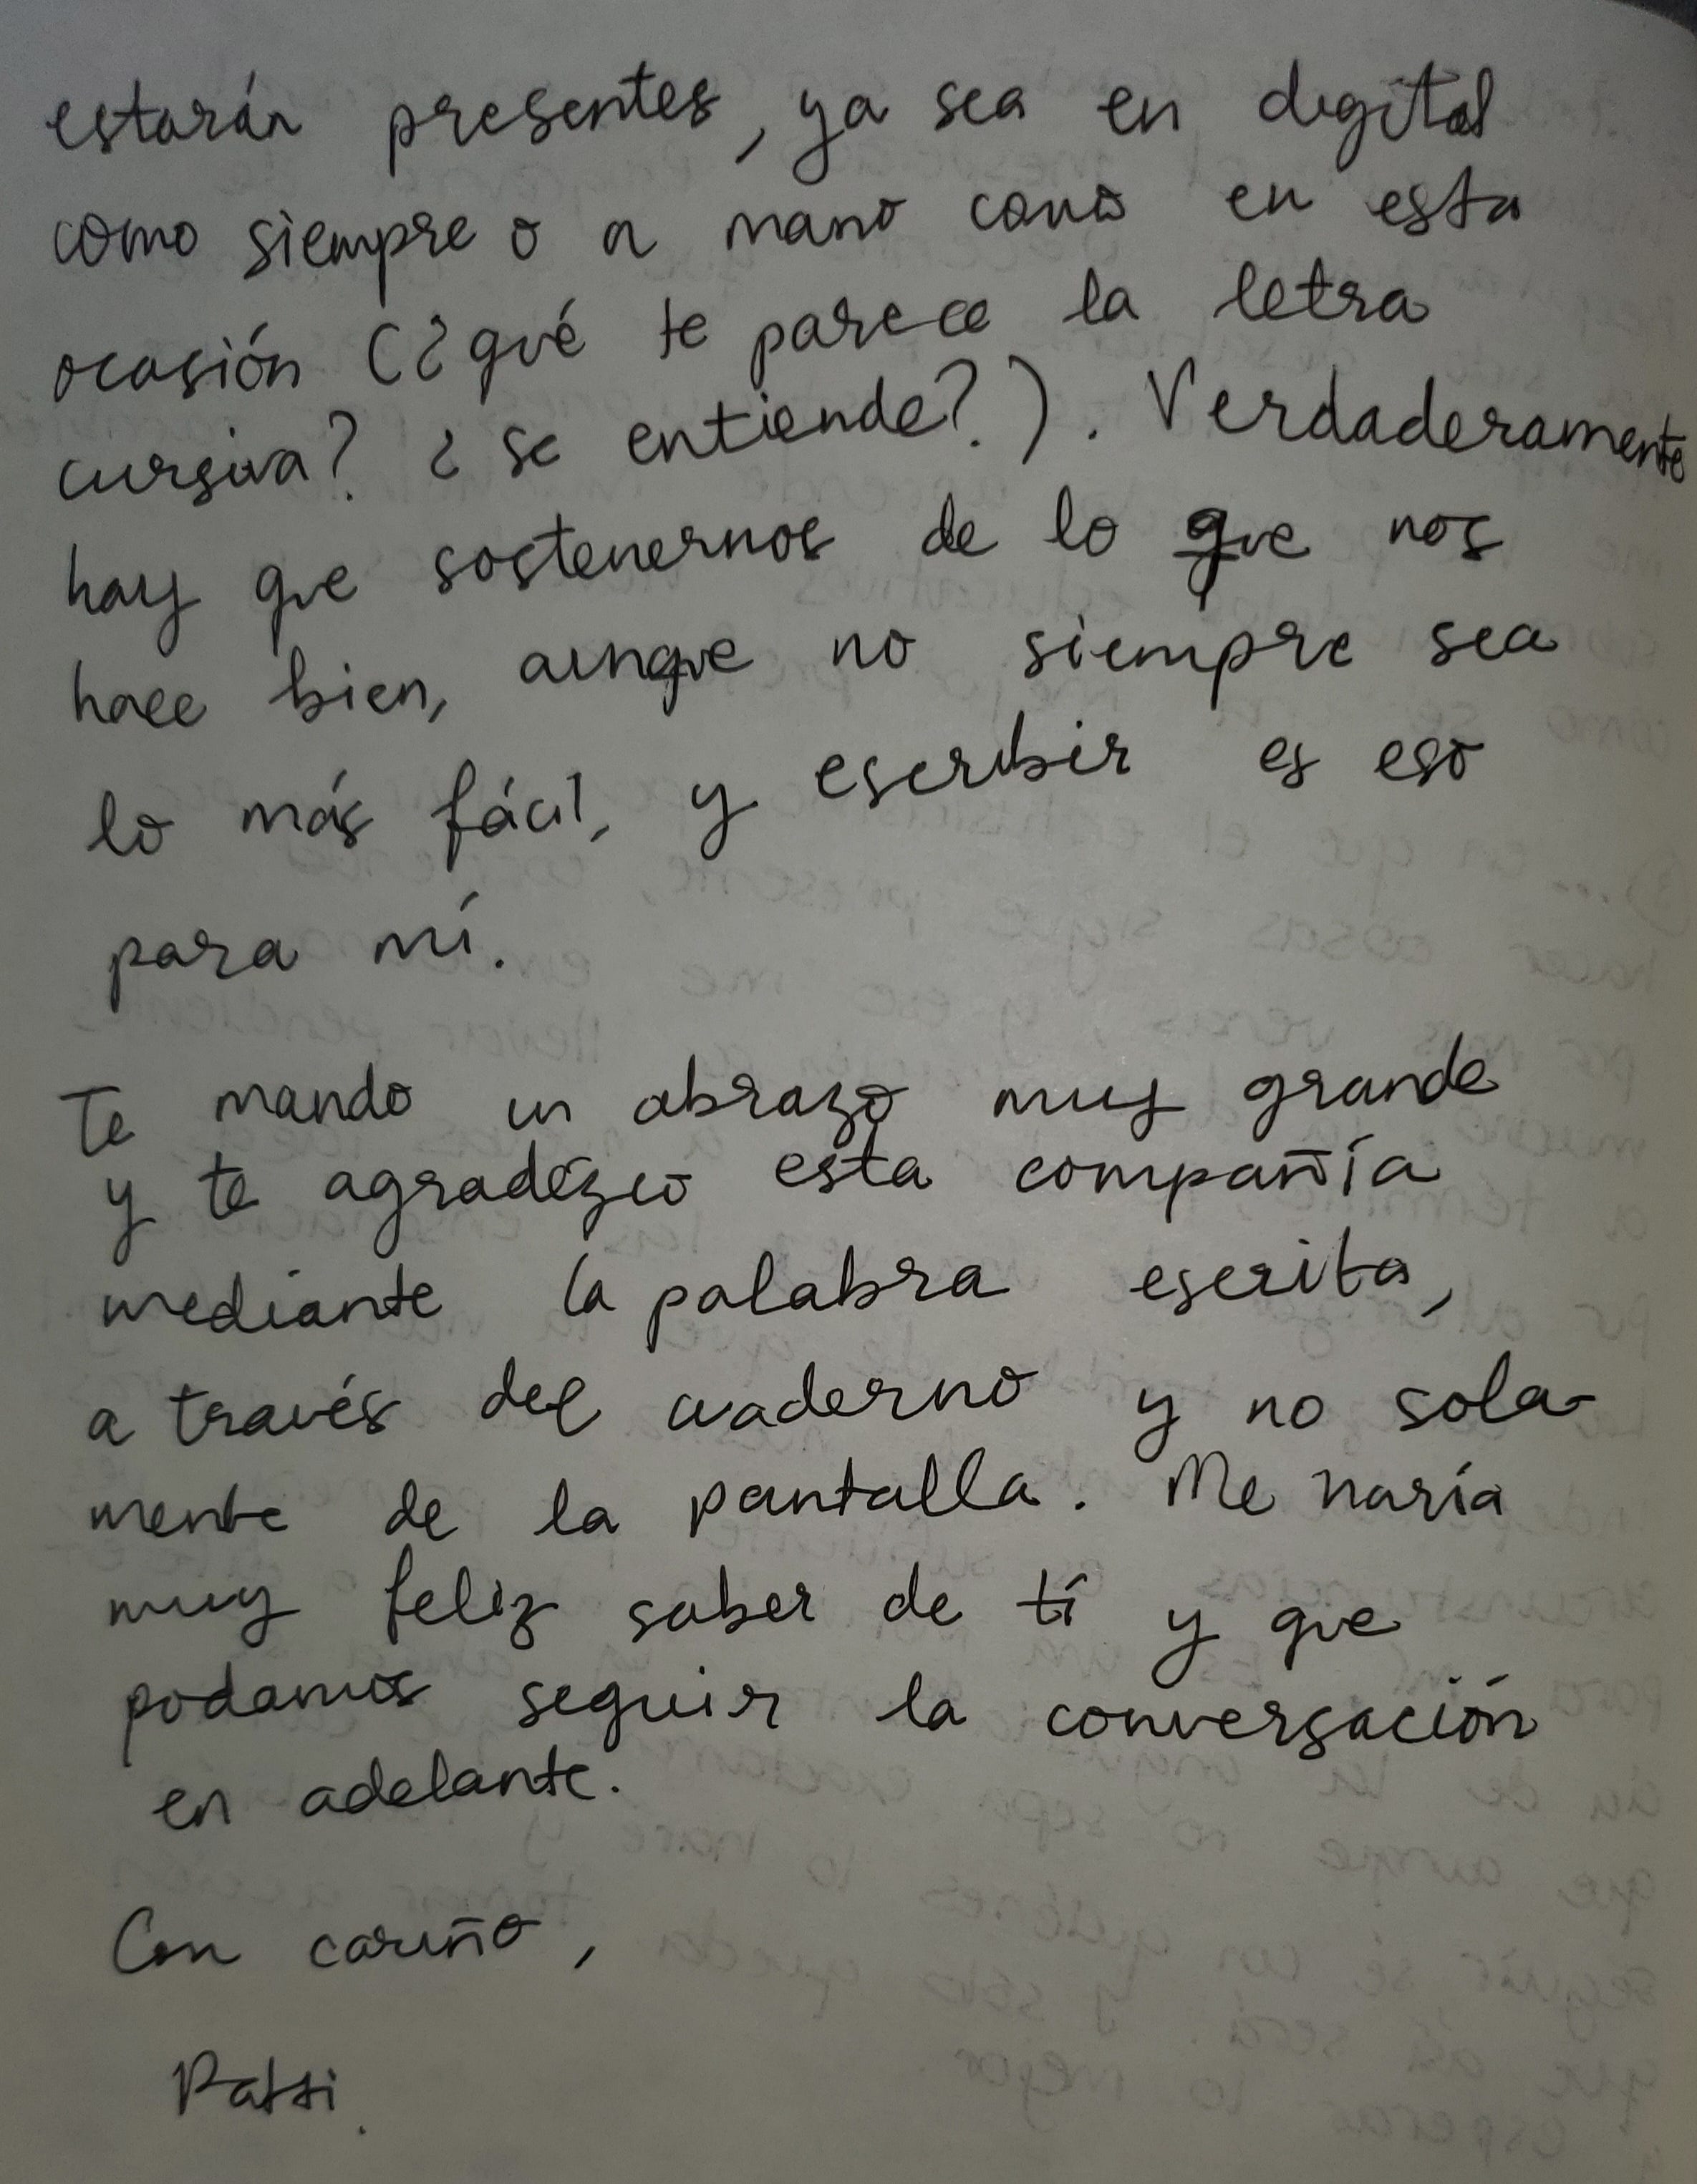 estarán presentes, ya sea en digital
como siempre o a mano como en esta
ocasión (¿qué te parece la letra
cursiva? ¿se entiende?). Verdaderamente
hay que sostenernos de lo que nos
hace bien, aunque no siempre sea
lo más fácil, y escribir es eso
para mí.
Te mando un abrazo muy grande
y te agradézco esta compañía
mediante la palabra escrita,
a través del cuaderno y no sola-
mente de la pantalla. Me haría
muy feliz saber de tí y que
podamos seguir la conversación
en adelante.
Con cariño,
Patti.